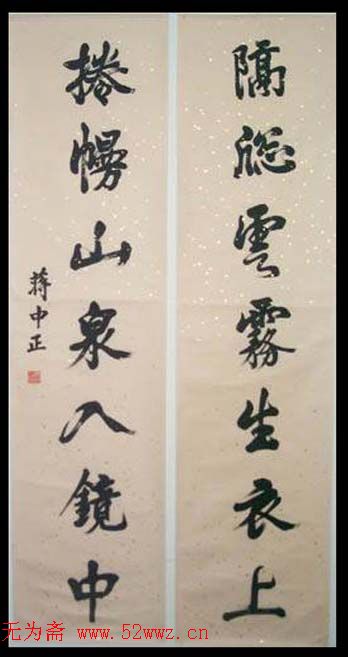 隔窓雲霧生衣上
捲幔山泉入鏡中
蔣中正
无为斋 www.52wwz.cn